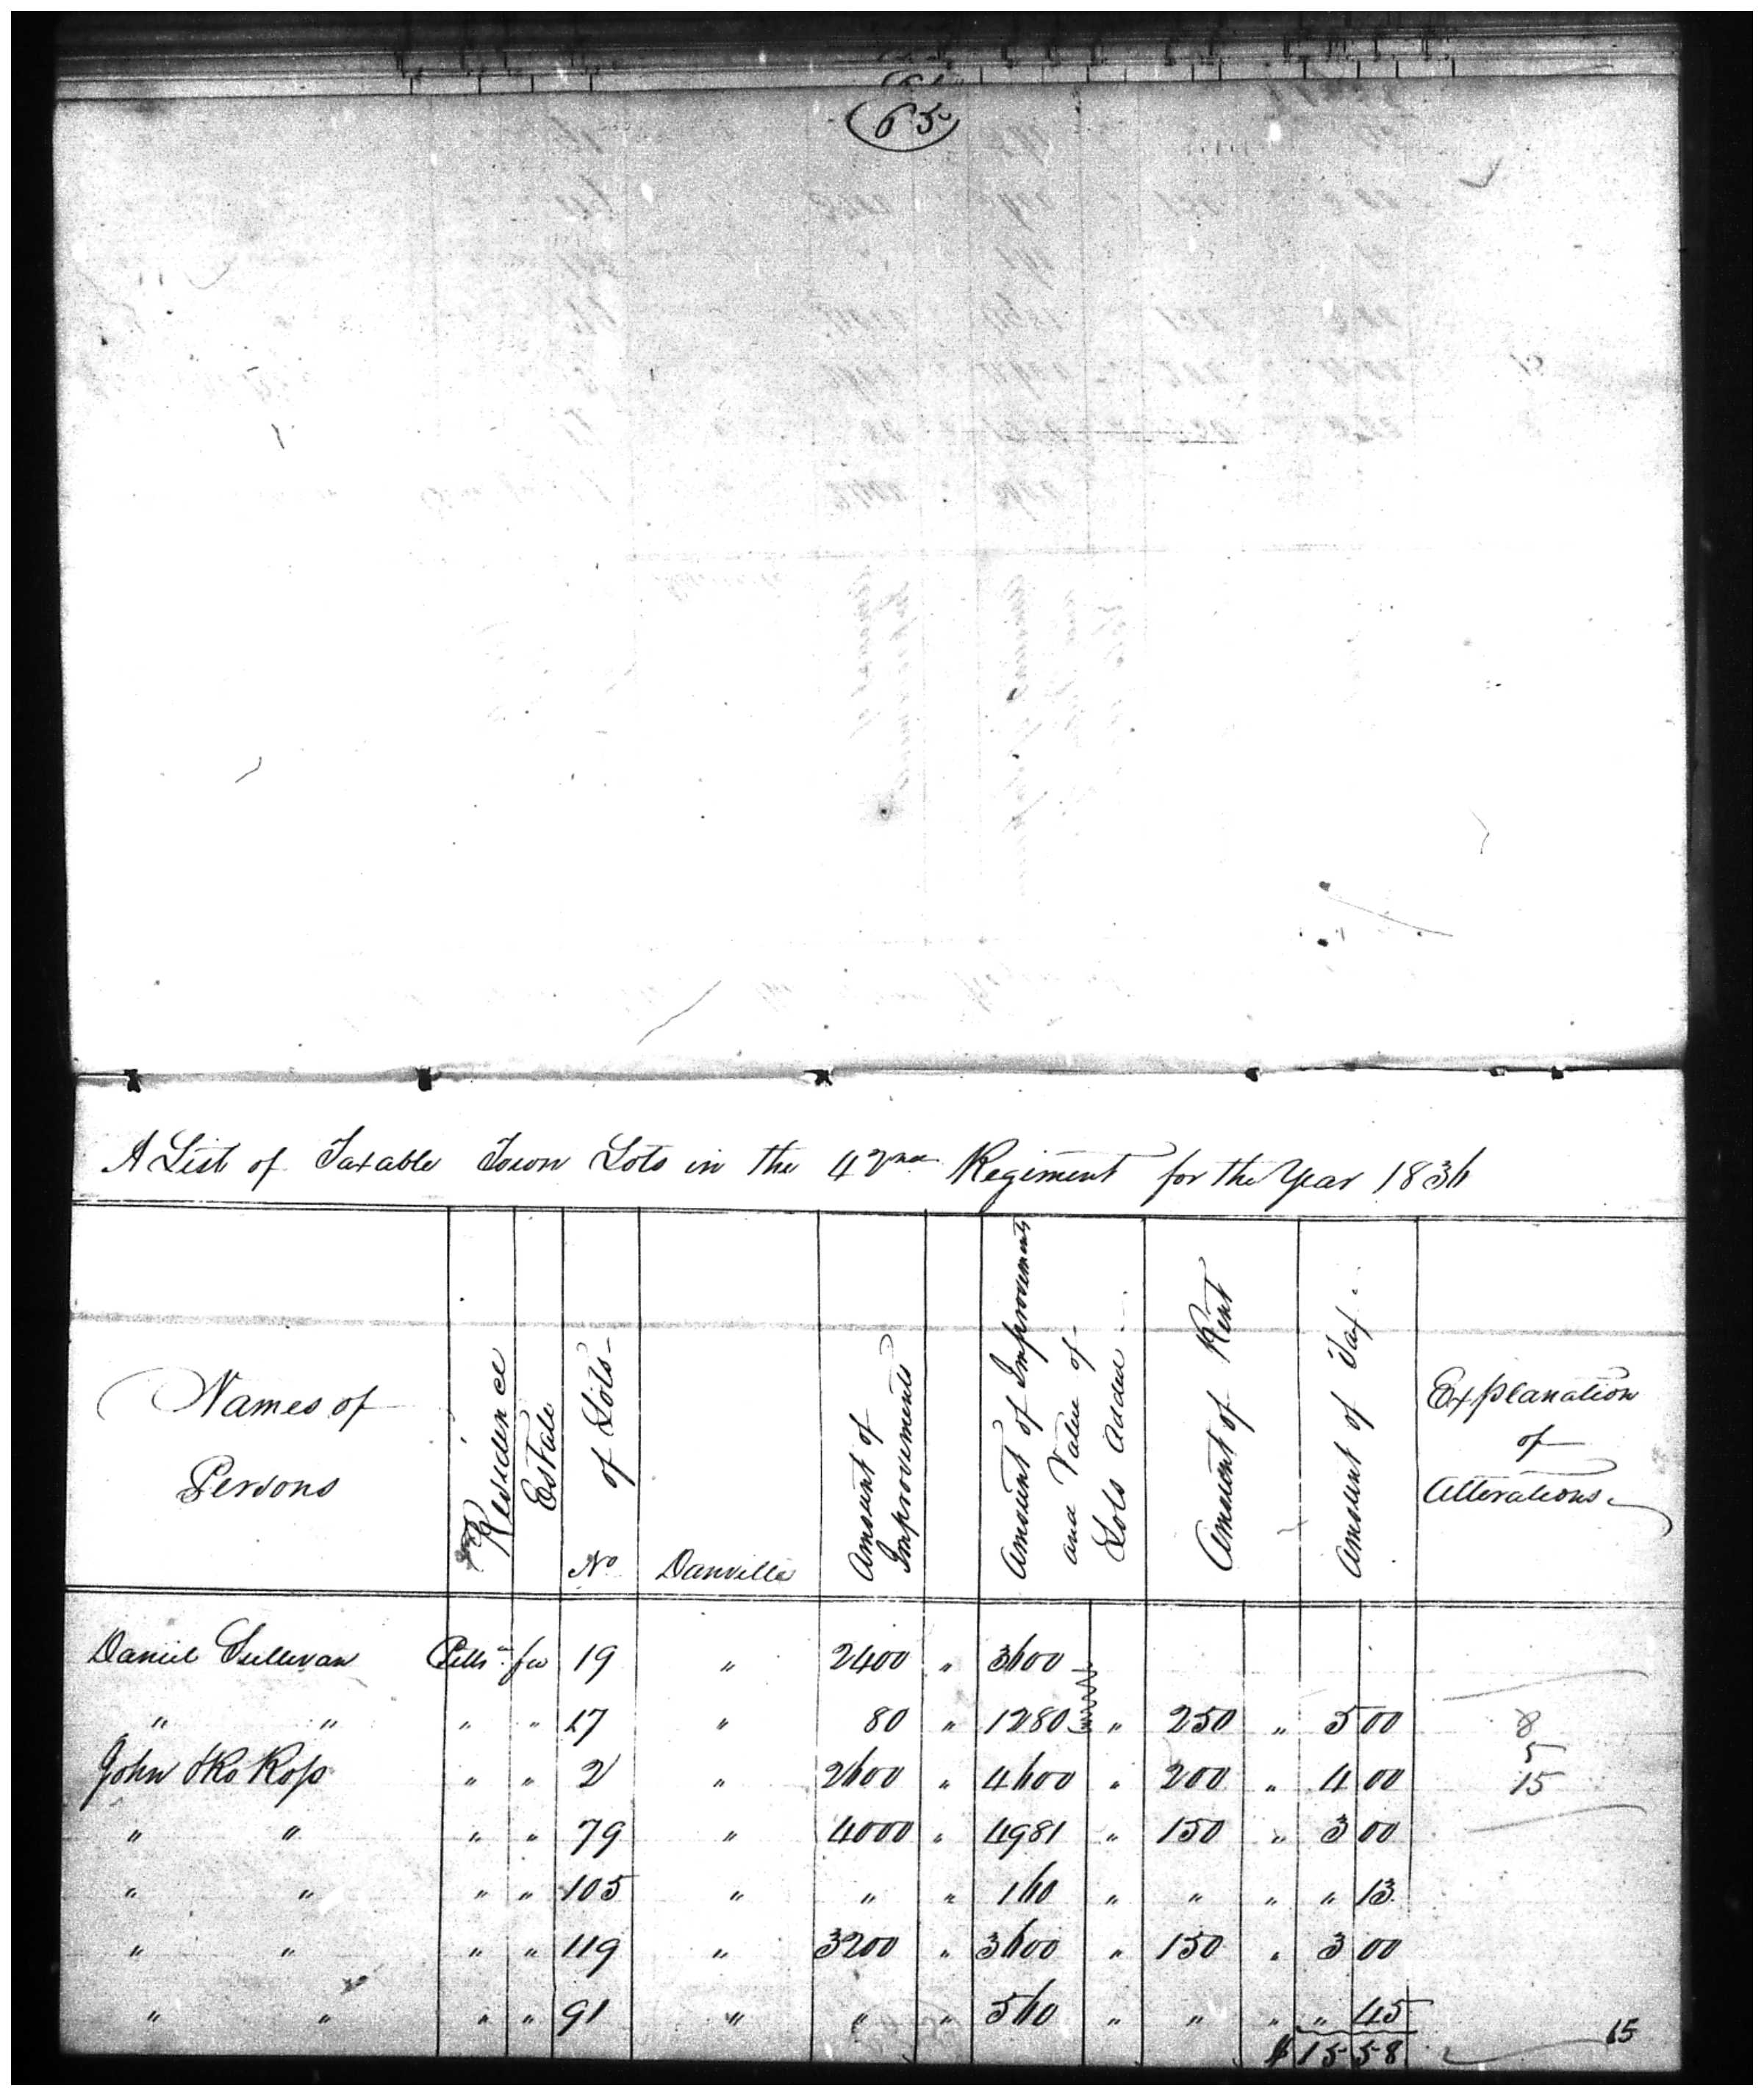 65
A List of Taxable Town Lots in the 42nd Regiment for the Year 1836
Names of Persons | Residence | Estate | No of Lots | Danville | Amount of Improvements | Amount of Improvements and Value of Lots Added | Amount of Rent | Amount of Tax | Explanation of Alterations
Daniel Sullivan Pitts a fee 19 " 2400 " 3600
" " " " 17 " 80 " 1280 " 250 " 5 00 8
5
John & Ro Ross " " 2 " 2600 " 4600 " 200 " 4 00 15
" " " " 79 " 4000 " 4981 " 150 " 3 00
" " " " 105 " " " 160 " " " " 13
" " " " 119 " 3200 " 3600 " 150 " 3 00
" " " " 91 " " " 560 " " " " 45
$15 58 15